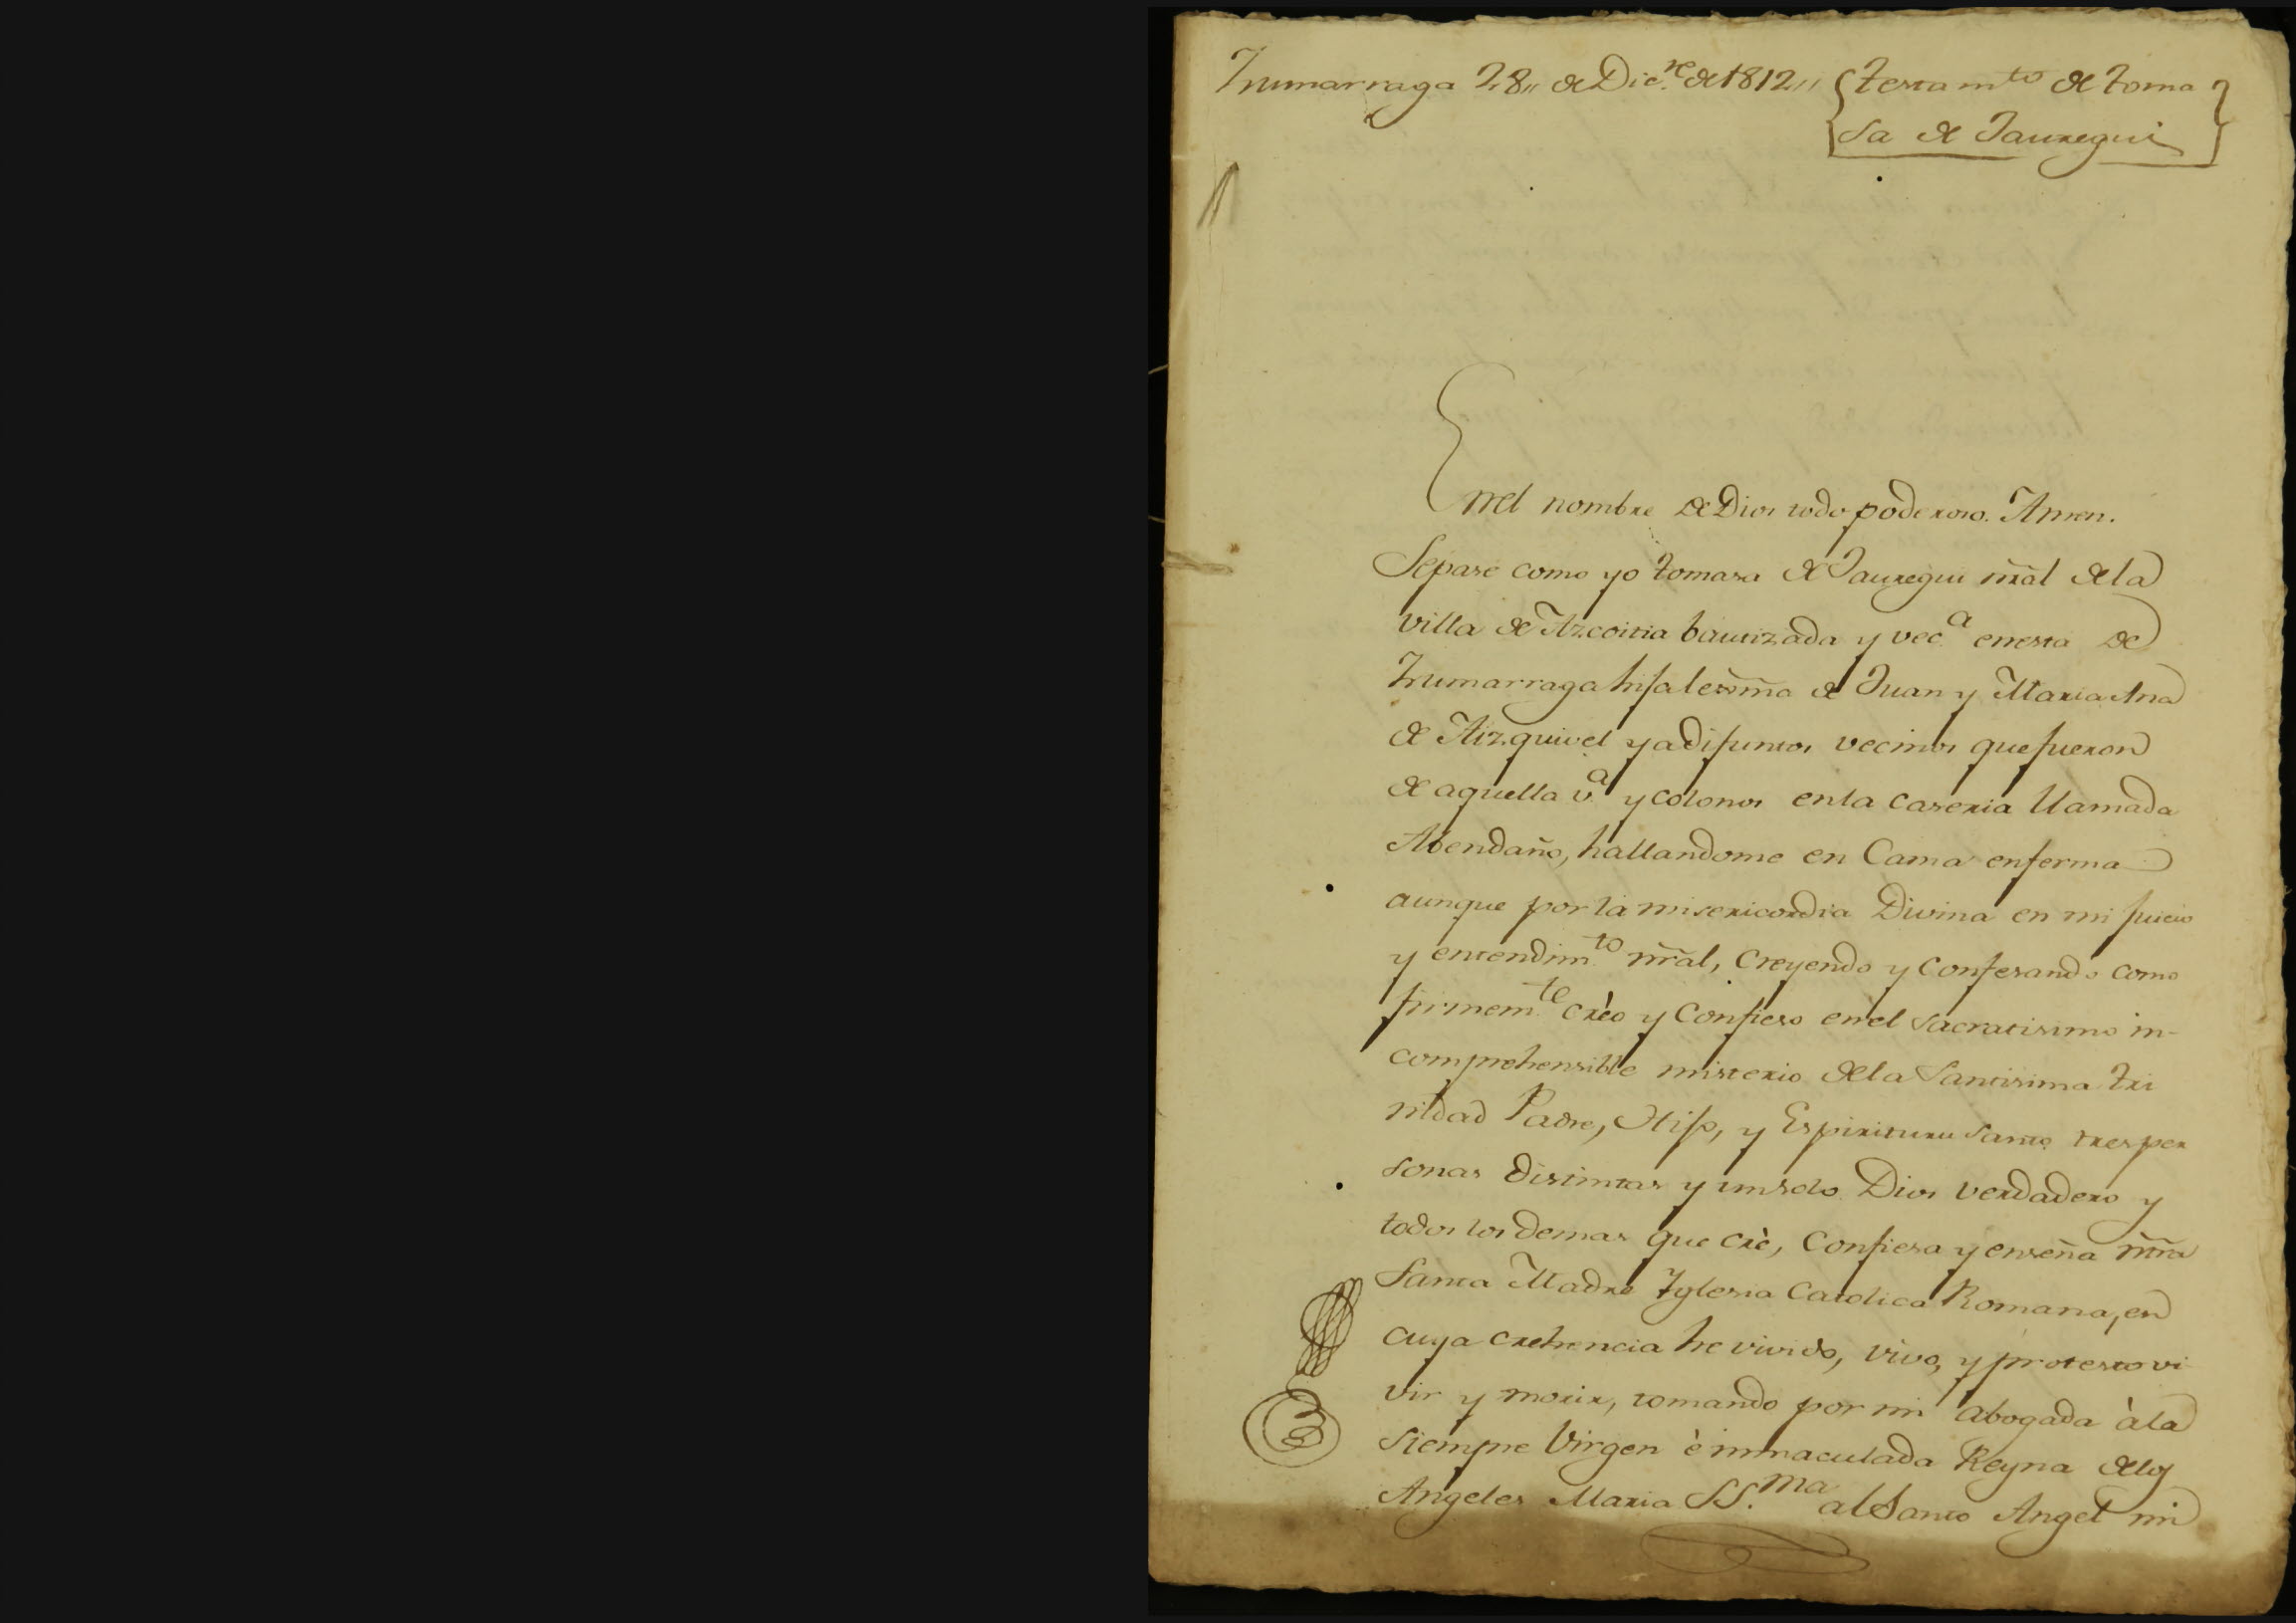 Zumarraga 28,, de Dic.re de 1812,, {Testam.to de Toma
sa de Jauregui}
Enel nombre de Dios todo poderoso. Amen.
Sepase como yo Tomasa de Jauregui ñral dela
villa de Azcoitia bautizada y vec.a enesta de
Zumarraga hija lexma de Juan y Maria Ana
de Aizquivel ya difuntos vecinos que fueron
de aquella v.a y colonos enla caseria llamada
Abendaño, hallandome en Cama enferma
aunque por la misericordia Divina en mi juicio
y entendim.to ñral, creyendo y confesando como
firmem.te crèo y confieso enel sacratisimo in-
comprehensible misterio dela Santisima Tri
nidad Padre, Hijo, y Espiritu Santo tres per
sonas distintas y unsolo Dios verdadero y
todos los demas que crè, confiesa y enseña ñtra
Santa Madre Yglesia Catolica Romana, en
cuya crehencia he vivido, vivo, y protesto vi
vir y morir, tomando por mi abogada àla
siempre Virgen è inmaculada Reyna delos
Angeles Maria SS.ma al Santo Angel mi